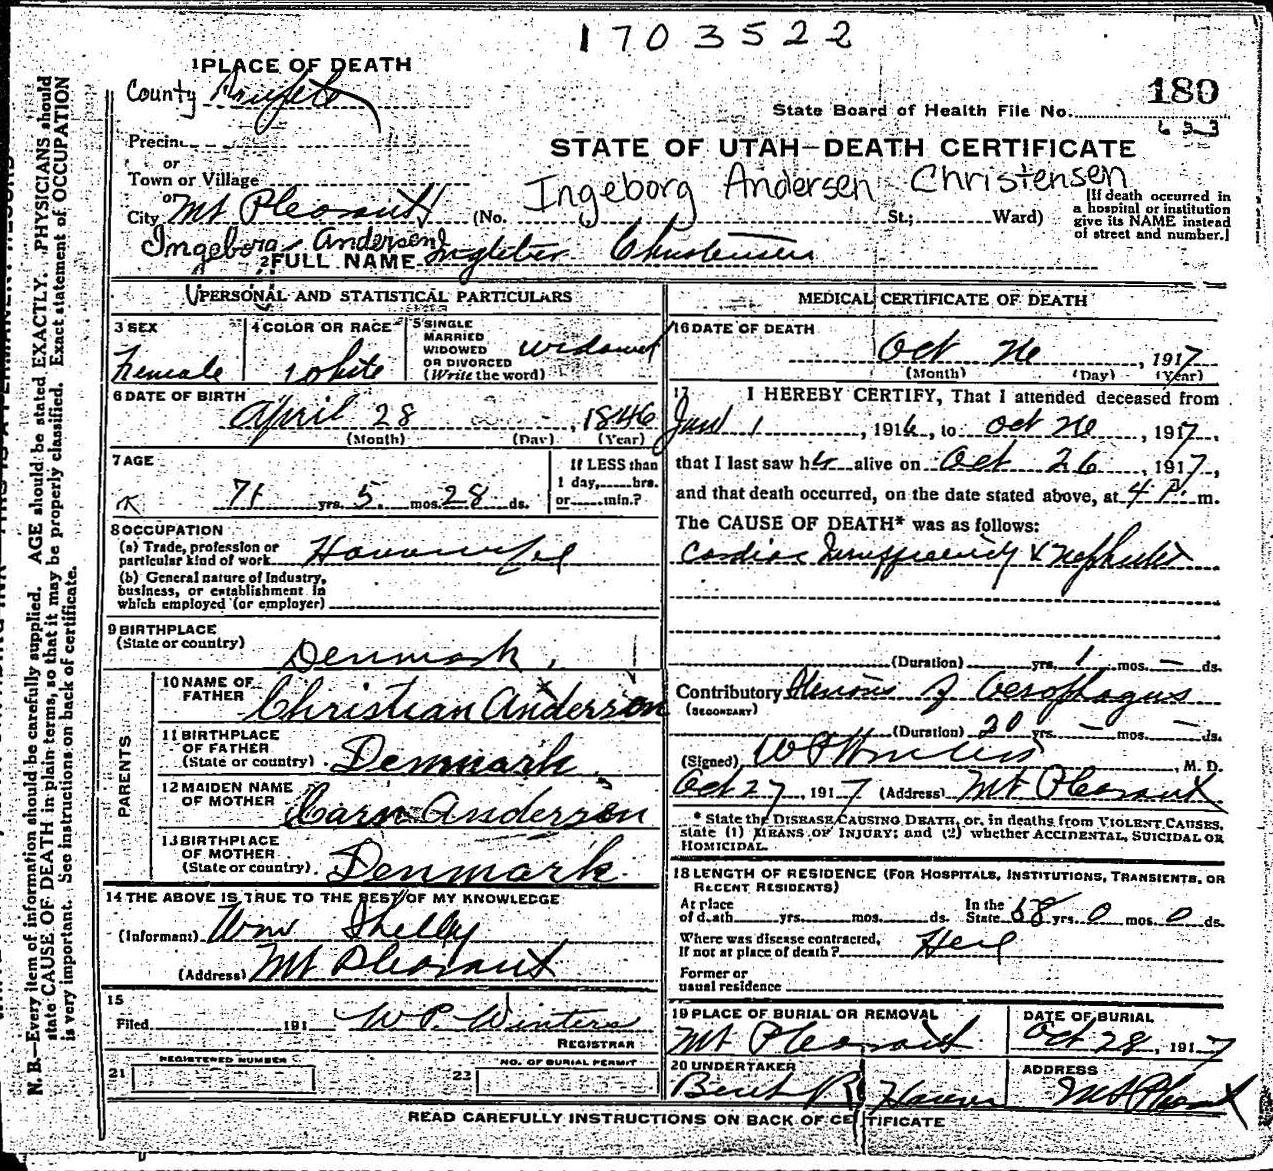 1703522
1 PLACE OF DEATH
County Sanpete
180
State Board of Health File No.
633
Precinc
or
Town or Village
STATE OF UTAH—DEATH CERTIFICATE
Ingeborg Andersen Christensen
or
City Mt Pleasant (No. St.; Ward)
[If death occurred in
a hospital or institution
give its NAME instead
of street and number.]
Ingeborg Andersen
2 FULL NAME Christensen
PERSONAL AND STATISTICAL PARTICULARS
3 SEX
Female
4 COLOR OR RACE
White
5 SINGLE
MARRIED
WIDOWED
OR DIVORCED
(Write the word)
Widowed
6 DATE OF BIRTH
April 28, 1846
(Month) (Day) (Year)
7 AGE
71 yrs. 5 mos. 28 ds.
If LESS than
1 day, hrs.
or min.?
8 OCCUPATION
(a) Trade, profession or
particular kind of work Housewife
(b) General nature of Industry,
business, or establishment in
which employed (or employer)
9 BIRTHPLACE
(State or country)
Denmark
PARENTS
10 NAME OF
FATHER
Christian Anderson
11 BIRTHPLACE
OF FATHER
(State or country) Denmark
12 MAIDEN NAME
OF MOTHER
Carn Anderson
13 BIRTHPLACE
OF MOTHER
(State or country) Denmark
14 THE ABOVE IS TRUE TO THE BEST OF MY KNOWLEDGE
(Informant) Wm Shelley
(Address) Mt Pleasant
15
Filed 191 W P. Winters
REGISTRAR
REGISTERED NUMBER
21
NO. OF BURIAL PERMIT
22
MEDICAL CERTIFICATE OF DEATH
16 DATE OF DEATH
Oct 26, 1917
(Month) (Day) (Year)
17 I HEREBY CERTIFY, That I attended deceased from
1, 1916, to Oct 26, 1917,
that I last saw her alive on Oct 26, 1917,
and that death occurred, on the date stated above, at 4 P. m.
The CAUSE OF DEATH* was as follows:
Cardiac Insufficiency & Nephritis
(Duration) yrs. 1 mos. — ds.
Contributory Stenosis of Oesophagus
(SECONDARY)
(Duration) 20 yrs. — mos. — ds.
(Signed) W P Winters, M. D.
Oct 27, 1917 (Address) Mt Pleasant
* State the DISEASE CAUSING DEATH, or, in deaths from VIOLENT CAUSES,
state (1) MEANS OF INJURY; and (2) whether ACCIDENTAL, SUICIDAL OR
HOMICIDAL.
18 LENGTH OF RESIDENCE (FOR HOSPITALS, INSTITUTIONS, TRANSIENTS, OR
RECENT RESIDENTS)
At place
of death yrs. mos. ds.
In the
State 58 yrs. 0 mos. 0 ds.
Where was disease contracted,
if not at place of death?
Former or
usual residence
19 PLACE OF BURIAL OR REMOVAL
Mt Pleasant
DATE OF BURIAL
Oct 28, 1917
20 UNDERTAKER
Bent R Hansen
ADDRESS
Mt Pleasant
READ CAREFULLY INSTRUCTIONS ON BACK OF CERTIFICATE
N. B.—Every item of information should be carefully supplied. AGE should be stated EXACTLY. PHYSICIANS should
state CAUSE OF DEATH in plain terms, so that it may be properly classified. Exact statement of OCCUPATION
is very important. See instructions on back of certificate.